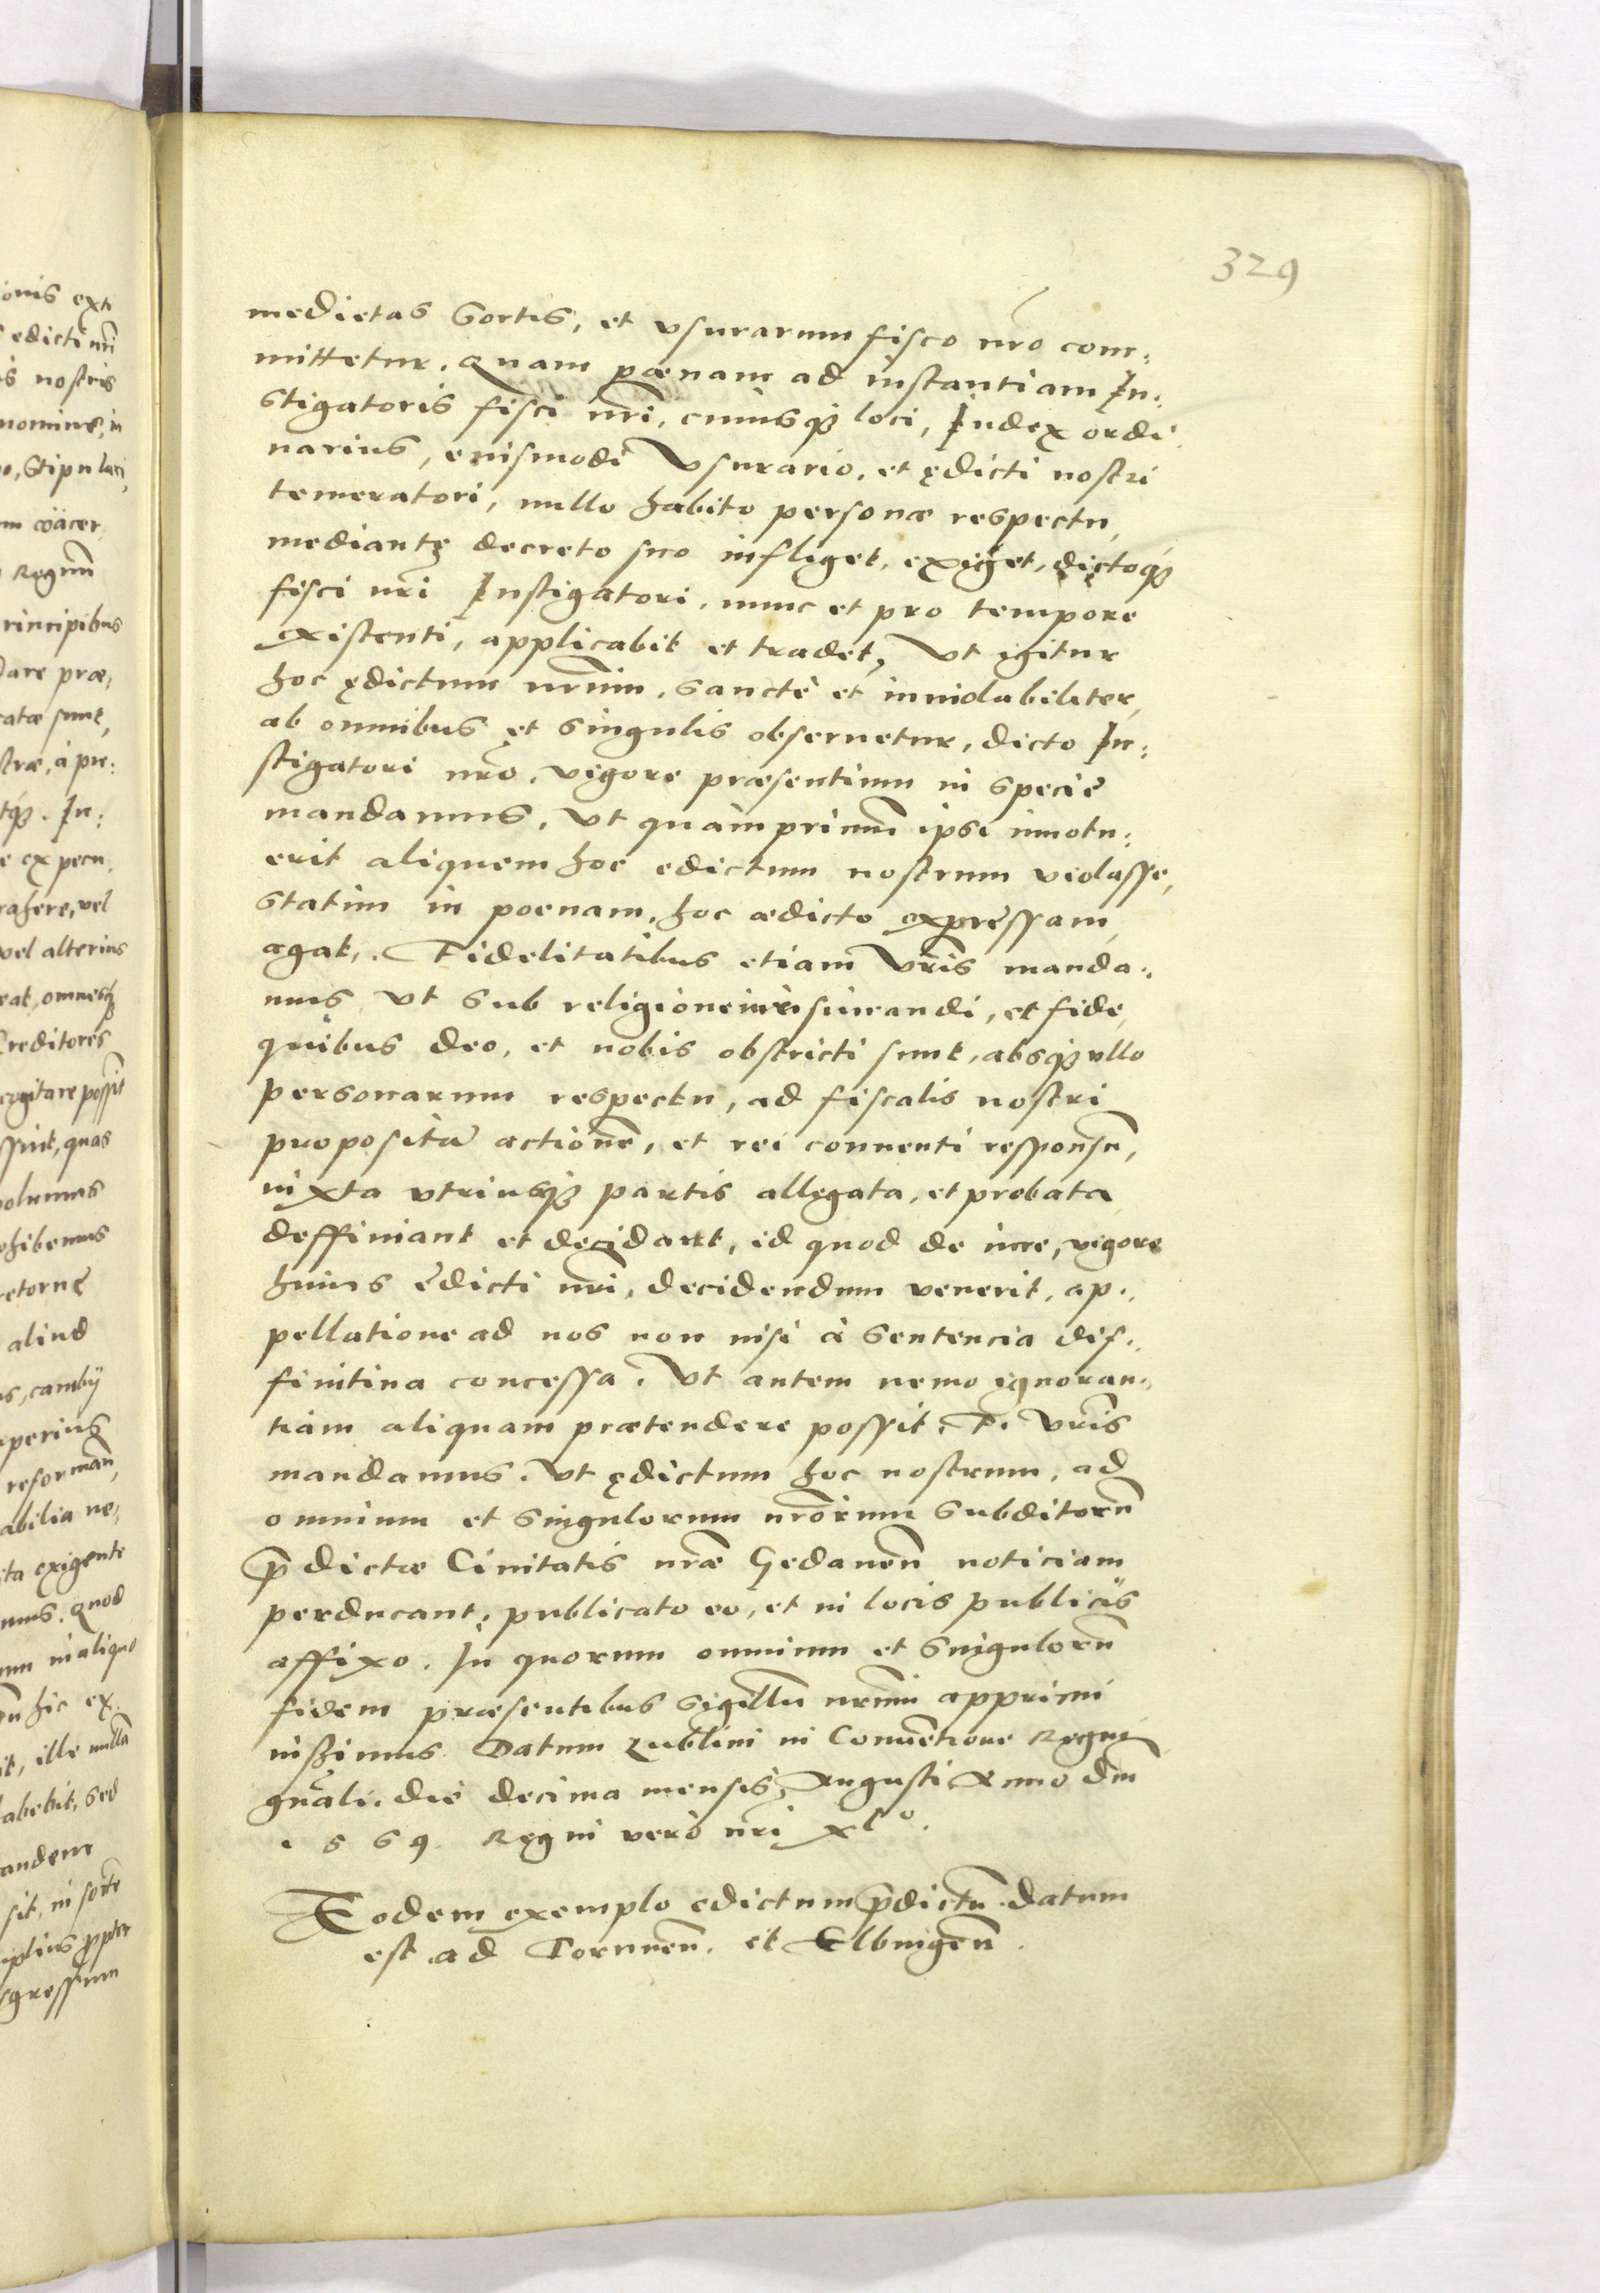 329
medietas sortis, et vsurarum fisco nr̃o com:
mittetur. Quam pœnam ad instantiam In:
stigatoris fisci nr̃i, cuiusq; loci, Iudex ordi
narius, euismodi Vsurario, et ędicti nostri
temeratori, nullo habito personæ respectu,
mediantę decreto suo infliget, exiget, dictoq;
fisci nr̃i Instigatori, nunc et pro tempore
existenti, applicabit et tradet, Vt igitur
hoc ędictum nr̃um, sanctè et inuiolabiliter,
ab omnibus et singulis obseruetur, dicto In:
stigatori nr̃o, vigore præsentium in specie
mandamus, Vt quàm primum ipsi innotu:
erit aliquem hoc edictum nostrum violasse,
statim in poenam, hoc ædicto expressam,
agat. Fidelitatibus etiam Vr̃is manda:
mus, Vt sub religione iurisiurandi, et fide,
quibus deo, et nobis obstricti sunt, absq; ullo
personarum respectu, ad fiscalis nostri
propositã actionẽ, et rei conuenti responsũ,
iuxta vtriusq; partis allegata, et probata
deffiniant et decidant, id quod de iure, vigore
huius edicti nr̃i, decidendum venerit, ap:
pellatione ad nos non nisi à sentencia dif:
finitiua concessa. Vt autem nemo ignoran:
tiam aliquam prætendere possit. F. Vr̃is
mandamus. Vt ędictum hoc nostrum, ad
omnium et singulorum nr̃orum subditorũ
p̃dictæ Ciuitatis nr̃æ Gedaneñ noticiam
perducant, publicato eo, et in locis publicis
affixo. In quorum omnium et singulorũ
fidem præsentibus sigillũ nr̃um apprimi
iussimus. Datum Lublini in Conuẽtione Regni
gñali, die decima mensis Augusti Anno Dñi
1569. Regni verò nr̃i xlº.
Eodem exemplo edictum p̃dictũ datum
est ad Toruneñ. et Elbingeñ.
ionis ext
edicti nr̃i
is nostris
nomine, in
o, stipulari,
Regnũ
rincipibus
dare præ:
catæ sunt,
In:
rahere, vel
vel alterius
eat, omnesq;
Creditores
quas
olumus
ohibemus
aliud
s, cambij
abilia ne:
ta exigente
mus. Quod
um in aliquo
hic ex
it, ille nullã
abebit, sed
sit, in sorte